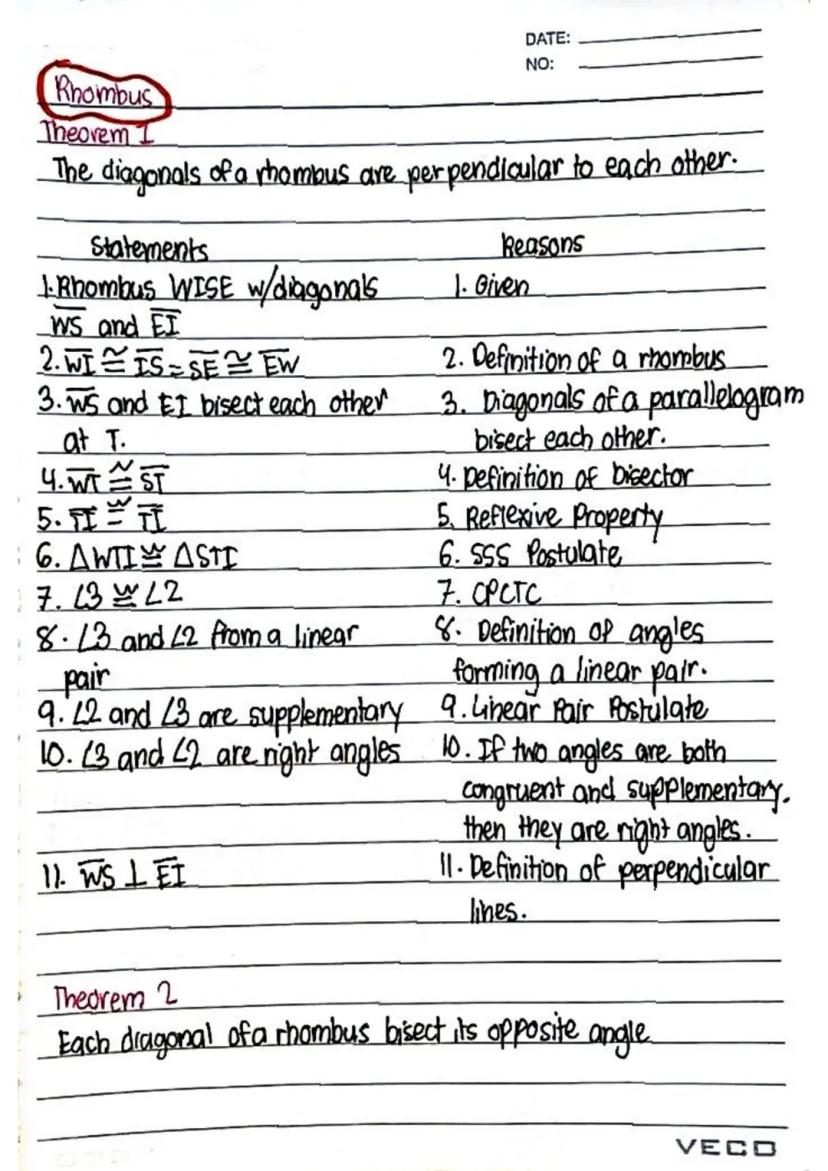 DATE:
NO:
Rhombus
Theorem I
The diagonals of a rhombus are perpendicular to each other.
Statements Reasons
1. Rhombus WISE w/diagonals 1. Given
W̅S̅ and E̅I̅
2. W̅I̅ ≅ I̅S̅ = S̅E̅ ≅ E̅W̅ 2. Definition of a rhombus
3. W̅S̅ and EI bisect each other 3. Diagonals of a parallelogram
at T. bisect each other.
4. W̅T̅ ≅ S̅T̅ 4. Definition of bisector
5. T̅I̅ ≅ T̅I̅ 5. Reflexive Property
6. ΔWTI ≅ ΔSTI 6. SSS Postulate
7. ∠3 ≅ ∠2 7. CPCTC
8. ∠3 and ∠2 from a linear 8. Definition of angles
pair forming a linear pair.
9. ∠2 and ∠3 are supplementary 9. Linear Pair Postulate
10. ∠3 and ∠2 are right angles 10. If two angles are both
congruent and supplementary.
then they are right angles.
11. W̅S̅ ⊥ E̅I̅ 11. Definition of perpendicular
lines.
Theorem 2
Each diagonal of a rhombus bisect its opposite angle
VECO